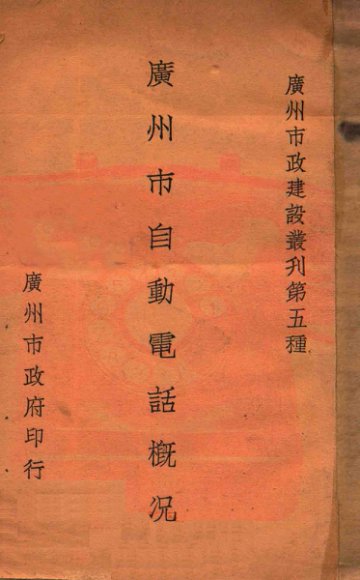 廣州市政建設叢刊第五種
廣州市自動電話概況
廣州市政府印行